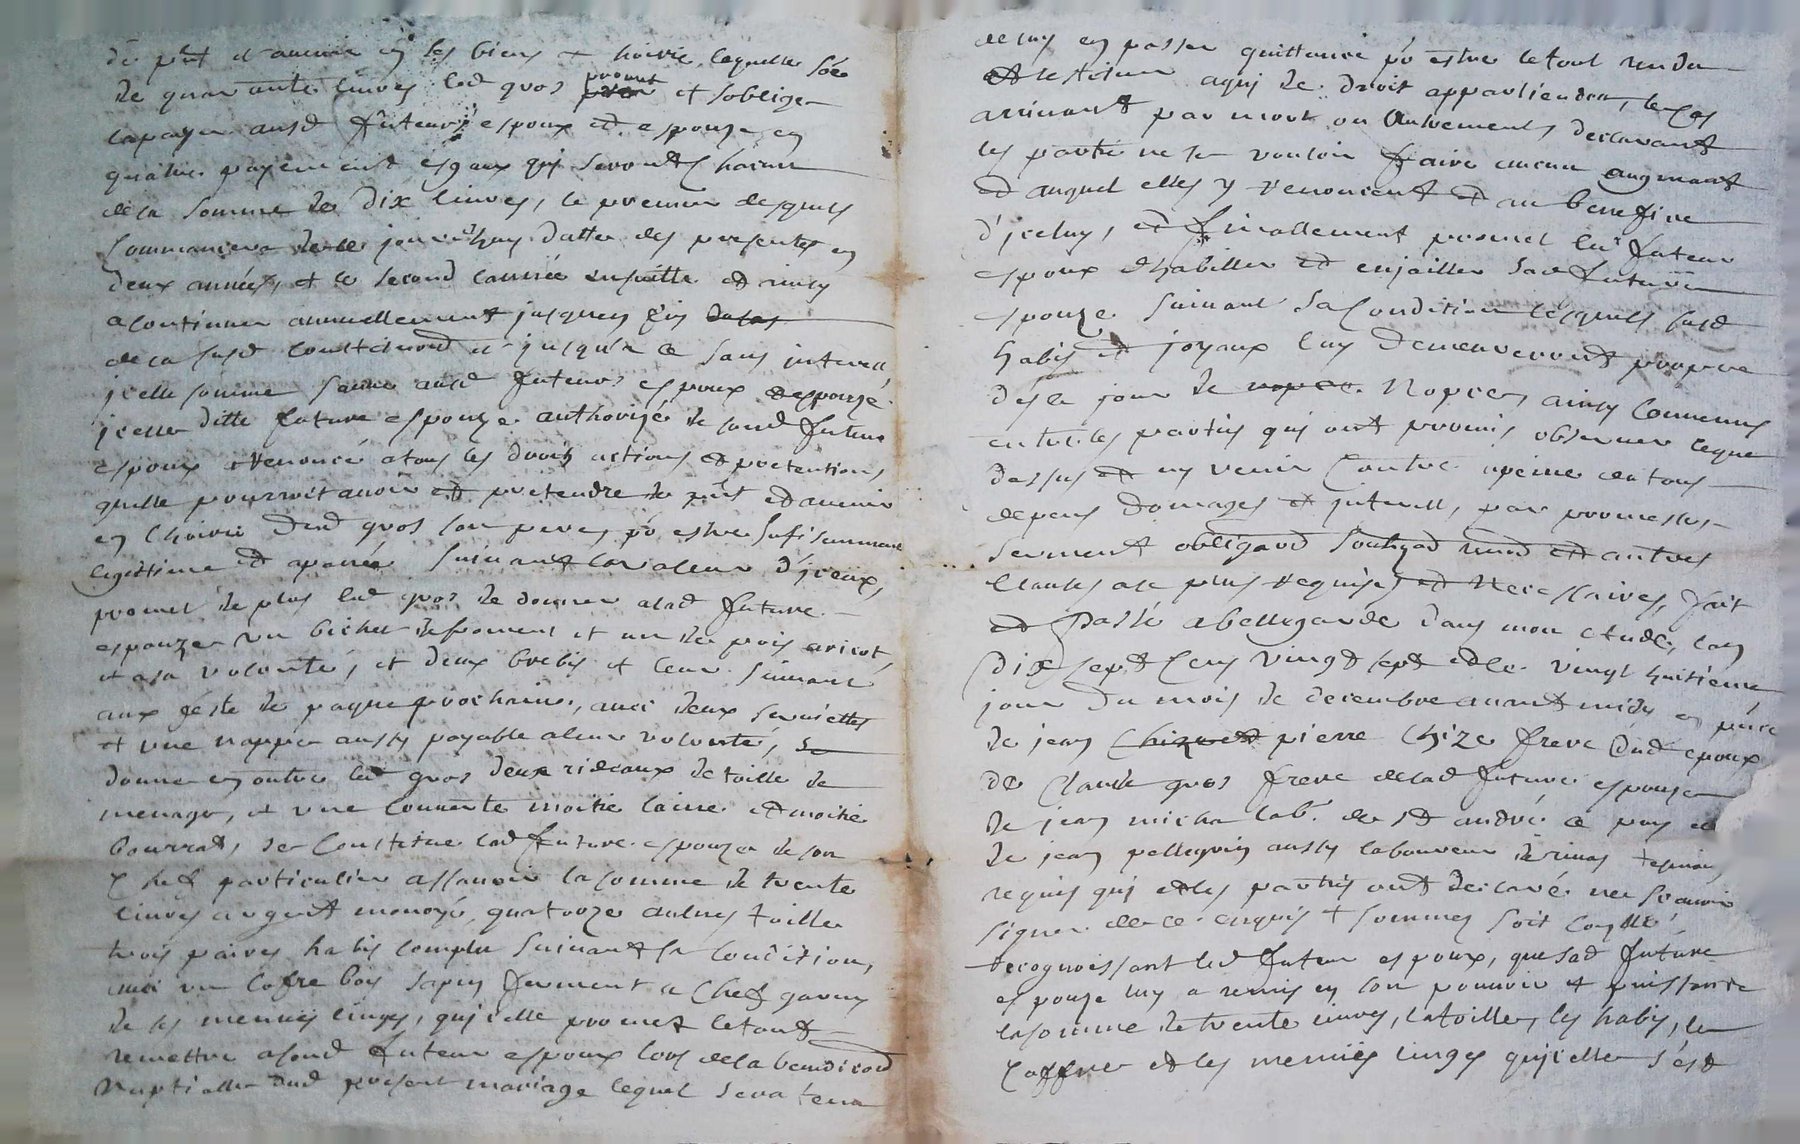 de pnt et avenir en ses biens et hoirie, laquelle soe
de quarante livres led gros promet et sobliger
lapayer ausd futeurs espoux et espouze en
quatres payements esgaux qui seront chacun
de la somme de dix livres, le premier desquels
commancera de ce jourdhuy datte des presentes en
deux années, et le second lannée ensuitte et ainsy
a continuer annuellement jusques fin
de la susd constitund et jusqua ce sans interest
icelle somme sauve ausd futeurs espoux et espouze
icelle ditte future espouze authorizé de sond futeur
espoux a renoncé a tous les droits actions et pretentions
quelle pourroit avoir et pretendre de pnt et avenir
en lhoirie dud gros son pere, po estre sufisamment
legittime et aparée suivant la valleur diceux,
promet de plus led gros de donner a lad future
espouze un bichet de froment et un de pois aricot,
et a sa volonté, et deux brebis et leur suivant
aux feste de paque prochaine, avec deux serviettes
et une nappe aussy payable a leur volonté, se
donne en outre led gros deux rideaux de toille de
menage, et une couverte moitié laine et moitié
bourrat, se constitue lad future espouze de son
chef particulier assavoir la somme de trente
livres argent monoyé, quatorze aulnes toille
trois paires habis complet suivant sa condition,
avec un cofre bois sapin fermant a clef garny
de ses menues linges, quicelle promet le tout
remettre a sond futeur espoux lors de la benedicond
nuptialle dud present mariage lequel sera tenu
de luy en passer quittance po estre le tout rendu
et restitue a qui de droit appartiendra, le cas
arrivant par mort ou autrement, declarant
les partie ne se vouloir faire aucun augment
et auquel elles y renoncent et au benefice
d'iceluy, et finallement promet led futeur
espoux dhabiller et enjailler sad future
espouze suivant sa condition lesquels susd
habis et joyaux luy demeureront propre
dès le jour de nopces, ainsy convenus
entre les parties qui ont promis observer ceque
dessus et ny venir contre a peine de tous
depens domages et interest, par promesses
serment obligaod soubzod renod et autres
clauses a ce plus requises et necessaires, fait
et passé a bellegarde dans mon etude, lan
dix sept cens vingt sept et le vingt huitieme
jour du mois de decembre avant midy en pnce
de jean pierre Chize frere dud epoux
de Claude gros frere de lad future espouze
de jean micha lab. de st andré ce pays et
de jean pellegrin aussy laboureur de rivas tesmoins
requis qui et les parties ont declaré ne scavoir
signer de ce enquis et sommes soit conllé
recognoissant led futeur espoux, que sad future
espouze luy a remis en son pouvoir et puissance
la somme de trente livres, la toille, les habis, le
coffre et les menues linges quicelle s'est